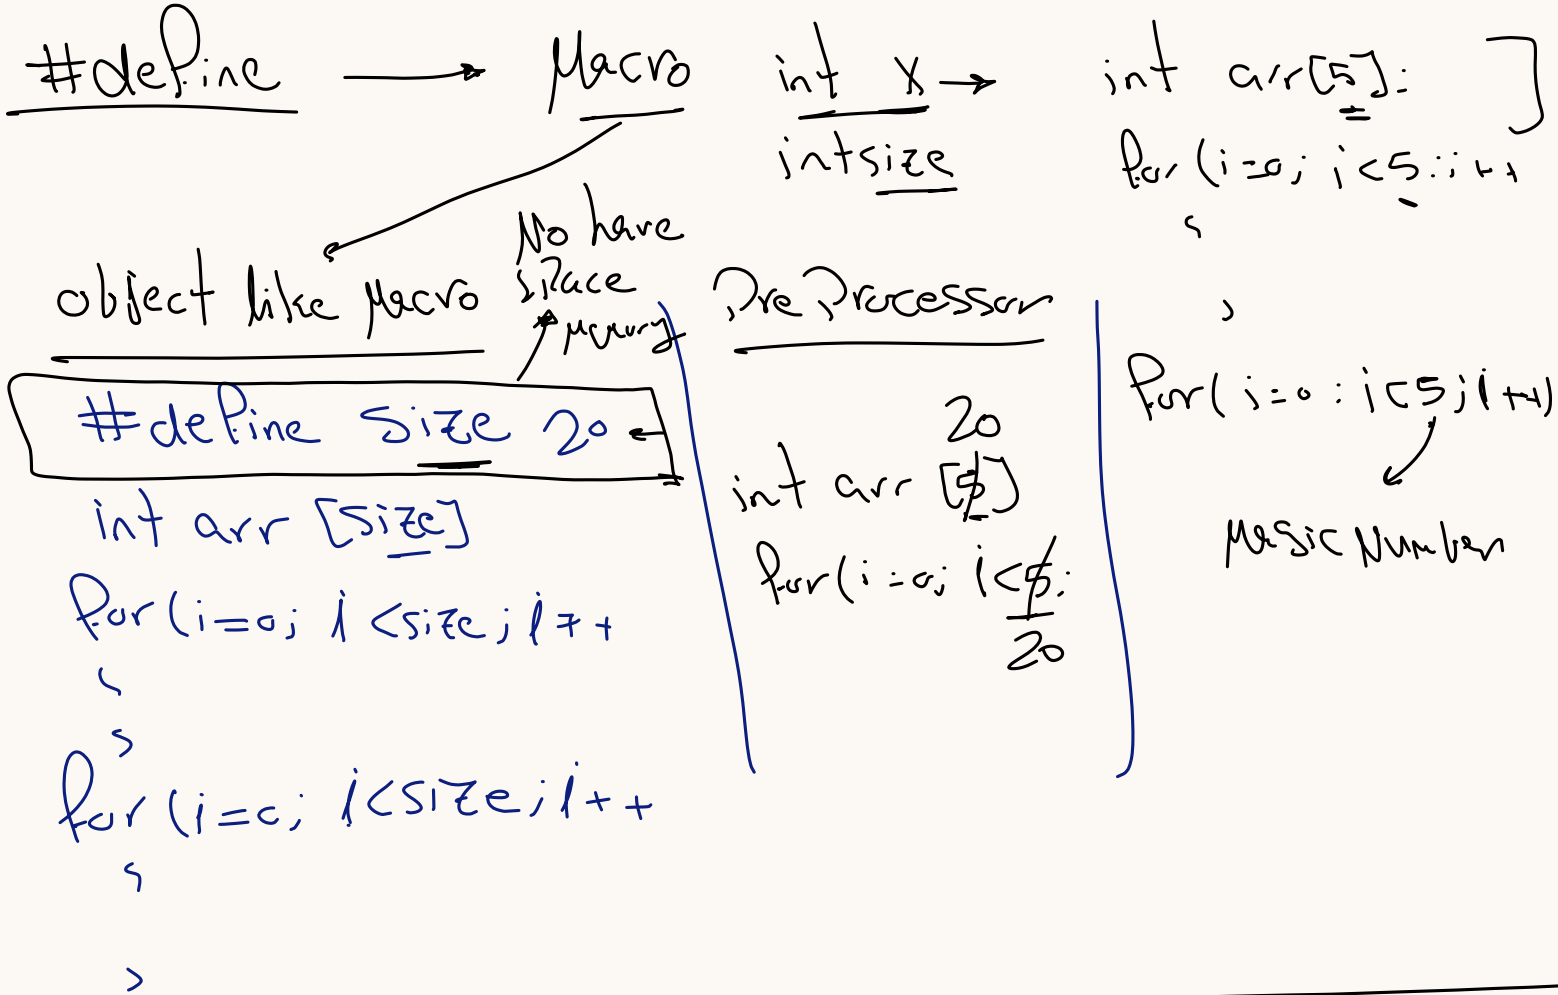 #define → Macro
int x →
int size
int arr[5];
for (i=0; i<5; i++
{
}
for( i=0; i<5; i++)
Magic Number
object like Macro
No have
space
memory
#define size 20 ←
int arr [size]
for (i=0; i<size; i++
{
}
for (i=0; i<size; i++
{
}
PreProcessor
20
int arr [5]
for(i=0; i<5;
20